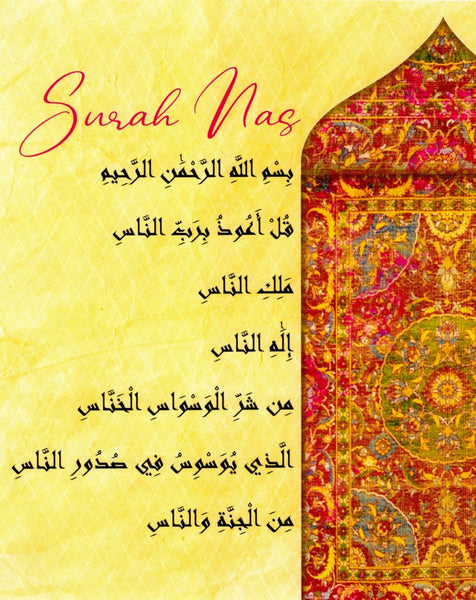 Surah Nas
بِسْمِ اللَّهِ الرَّحْمَٰنِ الرَّحِيمِ
قُلْ أَعُوذُ بِرَبِّ النَّاسِ
مَلِكِ النَّاسِ
إِلَٰهِ النَّاسِ
مِن شَرِّ الْوَسْوَاسِ الْخَنَّاسِ
الَّذِي يُوَسْوِسُ فِي صُدُورِ النَّاسِ
مِنَ الْجِنَّةِ وَالنَّاسِ